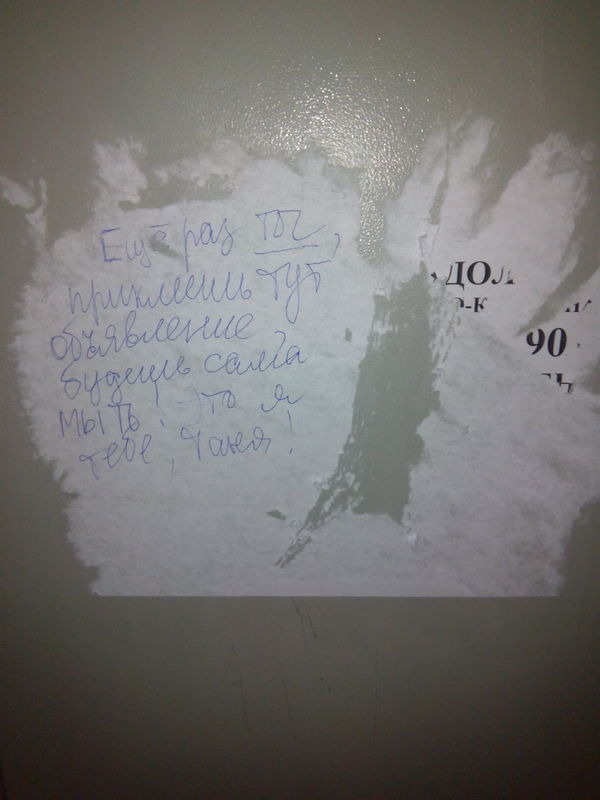 Ещё раз ты,
приклеишь тут
объявление,
будешь сама
мыть! Это я
тебе, Таня!
ДОЛ
90